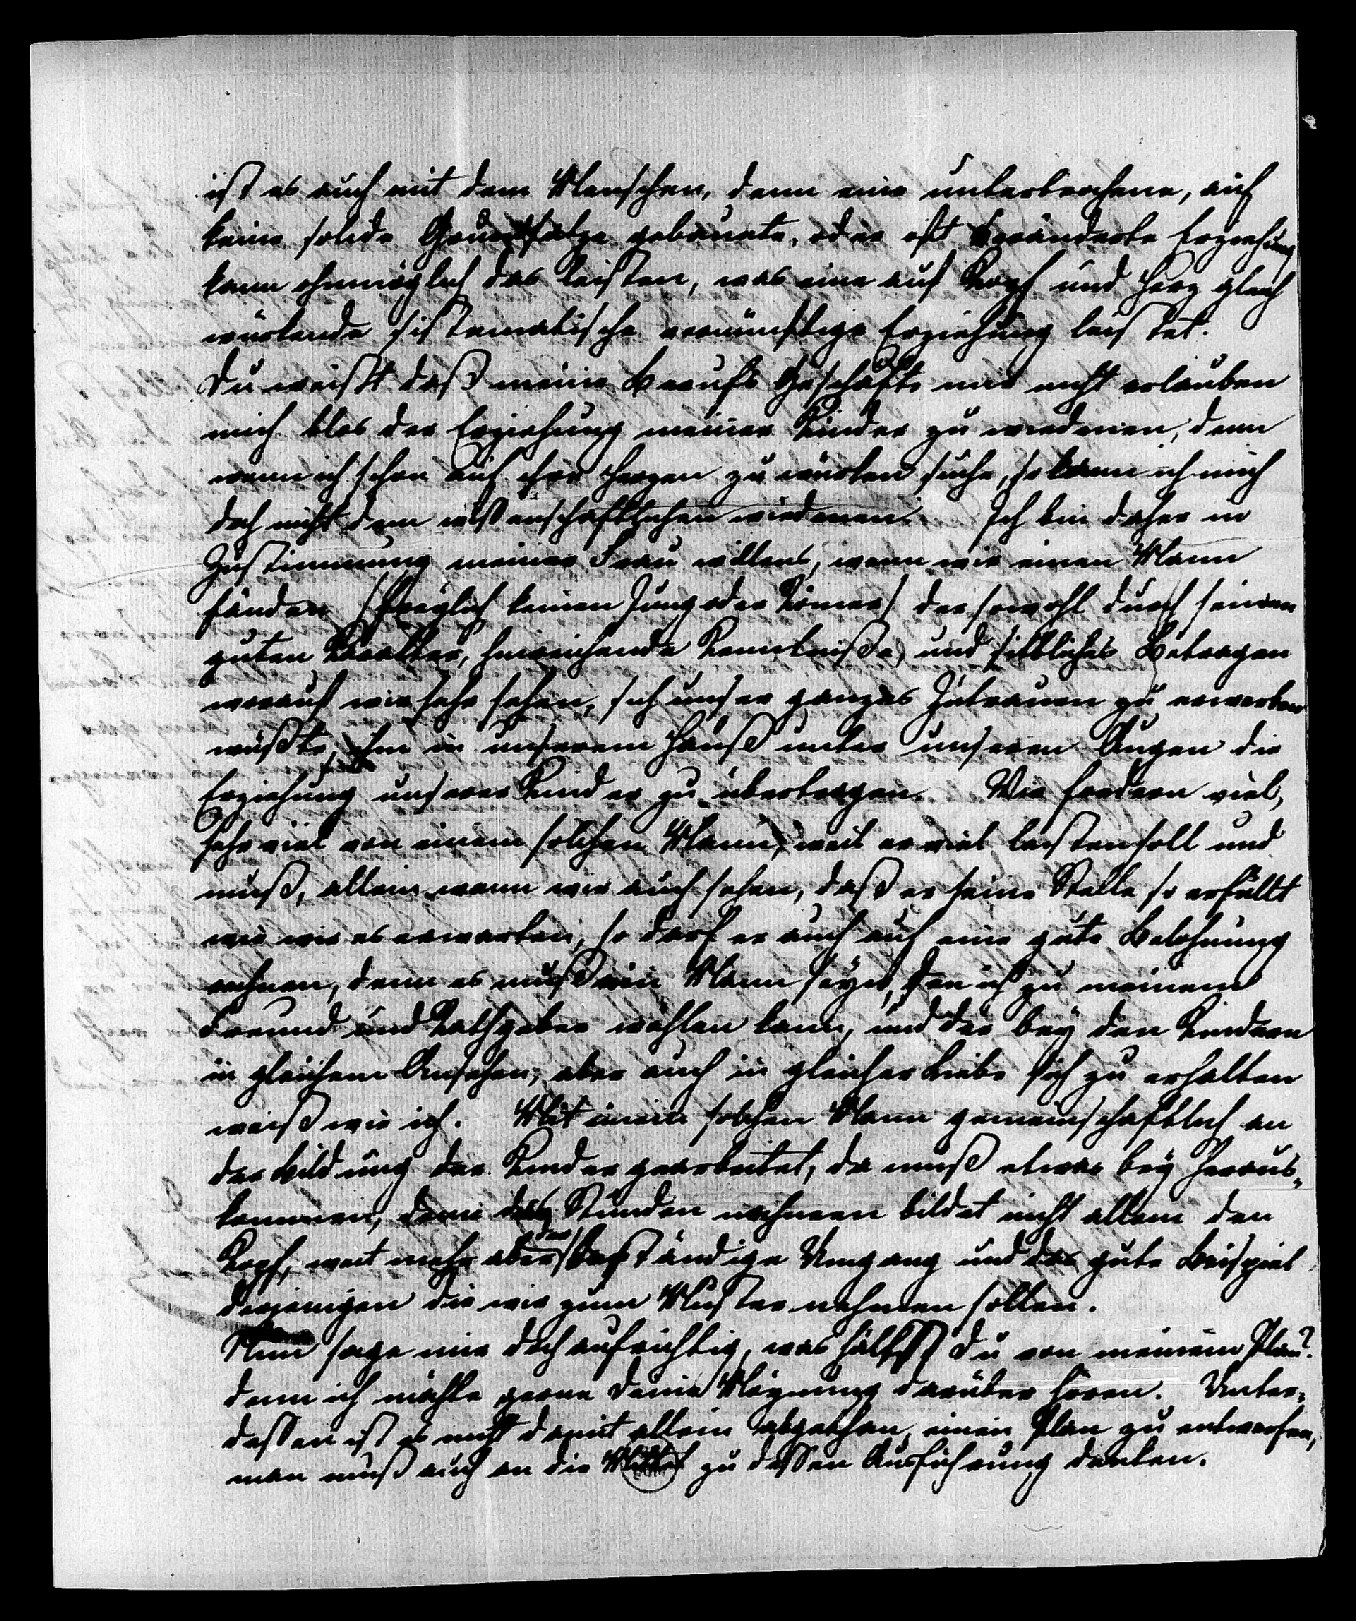 ist es auch mit dem Menschen, denn eine unterbrochene, auf
keine solide Grundsätze gebauete, oder oft veränderte Erziehung
kann ohnmöglich das leisten, was eine auf Kopf und Herz gleich
würkende sistematische vernünftige Erziehung leistet.
Du weißt daß meine Berufs Geschäfte mir nicht erlauben
mich blos der Erziehung meiner Kinder zu wiedmen, denn
wenn ich schon auf ihre Herzen zu würken suche, so kann ich mich
doch nicht dem wißenschaftlichen wiedmen. Ich bin daher in
Zustimmung meiner Frau willens, wann wir einen Mann
fänden (folglich keinen Jung oder Römer) der sowohl durch seinen
guten Karakter, hinreichende Kenntniße, und sittliches Betragen
worauf wir sehr sehen, sich unser ganzes Zutrauen zu erwerben
wüßte, ihm in unserem Hauß unter unseren Augen die
Erziehung unserer Kinder zu übertragen. Wir fordern viel,
sehr viel von einem solchen Mann, weil er viel leisten soll und
muß, allein wann wir auch sehen, daß er seine Stelle so erfüllt
wie wir es erwarten, so darf er auch auf eine gute Belohnung
rechnen, denn es muß ein Mann seyn, den ich zu meinem
Freund und Rathgeber wählen kann, und der bey den Kindern
in gleichem Ansehen, aber auch in gleicher Liebe sich zu erhalten
weiß wie ich. Mit einem solchen Mann gemeinschaftlich an
der Bildung der Kinder gearbeitet, da muß etwas bey heraus-
kommen, denn das Stunden nehmen bildet nicht allein den
Kopf, weit mehr aber der beständige Umgang und das gute Beispiel
derjenigen die wir zum Muster nehmen sollen.
Nun sage mir doch aufrichtig, was hältst Du von meinem Plan?
denn ich möchte gerne deine Meynung darüber hören. Unter-
deßen ist es nicht damit allein abgethan, einen Plan zu entwerfen,
man muß auch an die Mittel zu deßen Ausführung denken.